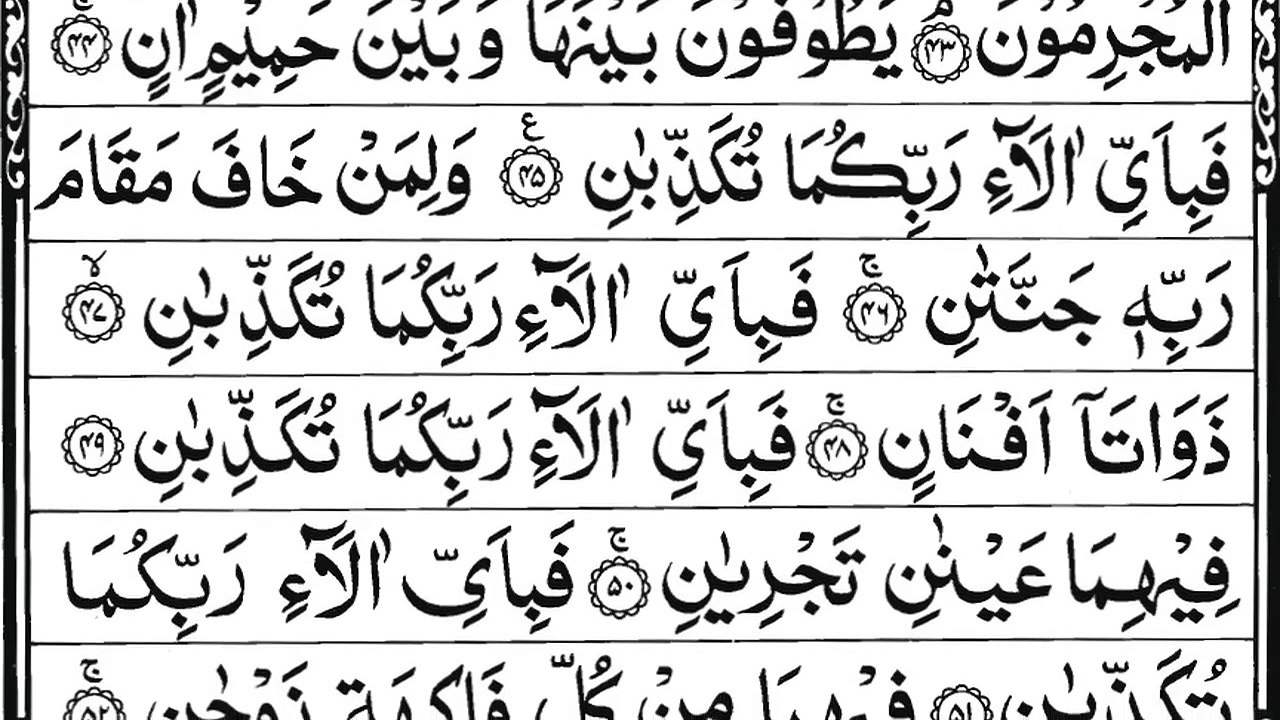 الْمُجْرِمُوْنَ ﴿۴۳﴾ۘ يَطُوْفُوْنَ بَيْنَهَا وَ بَيْنَ حَمِيْمٍ اٰنٍ ﴿۴۴﴾ۚ
فَبِاَيِّ اٰلَآءِ رَبِّكُمَا تُكَذِّبٰنِ ﴿۴۵﴾ع وَلِمَنْ خَافَ مَقَامَ
رَبِّهٖ جَنَّتٰنِ ﴿۴۶﴾ۚ فَبِاَيِّ اٰلَآءِ رَبِّكُمَا تُكَذِّبٰنِ ﴿۴۷﴾ۙ
ذَوَاتَاۤ اَفْنَانٍ ﴿۴۸﴾ۚ فَبِاَيِّ اٰلَآءِ رَبِّكُمَا تُكَذِّبٰنِ ﴿۴۹﴾
فِيْهِمَا عَيْنٰنِ تَجْرِيٰنِ ﴿۵۰﴾ۚ فَبِاَيِّ اٰلَآءِ رَبِّكُمَا
تُكَذِّبٰنِ ﴿۵۱﴾ فِيْهِمَا مِنْ كُلِّ فَاكِهَةٍ زَوْجٰنِ ﴿۵۲﴾ۚ